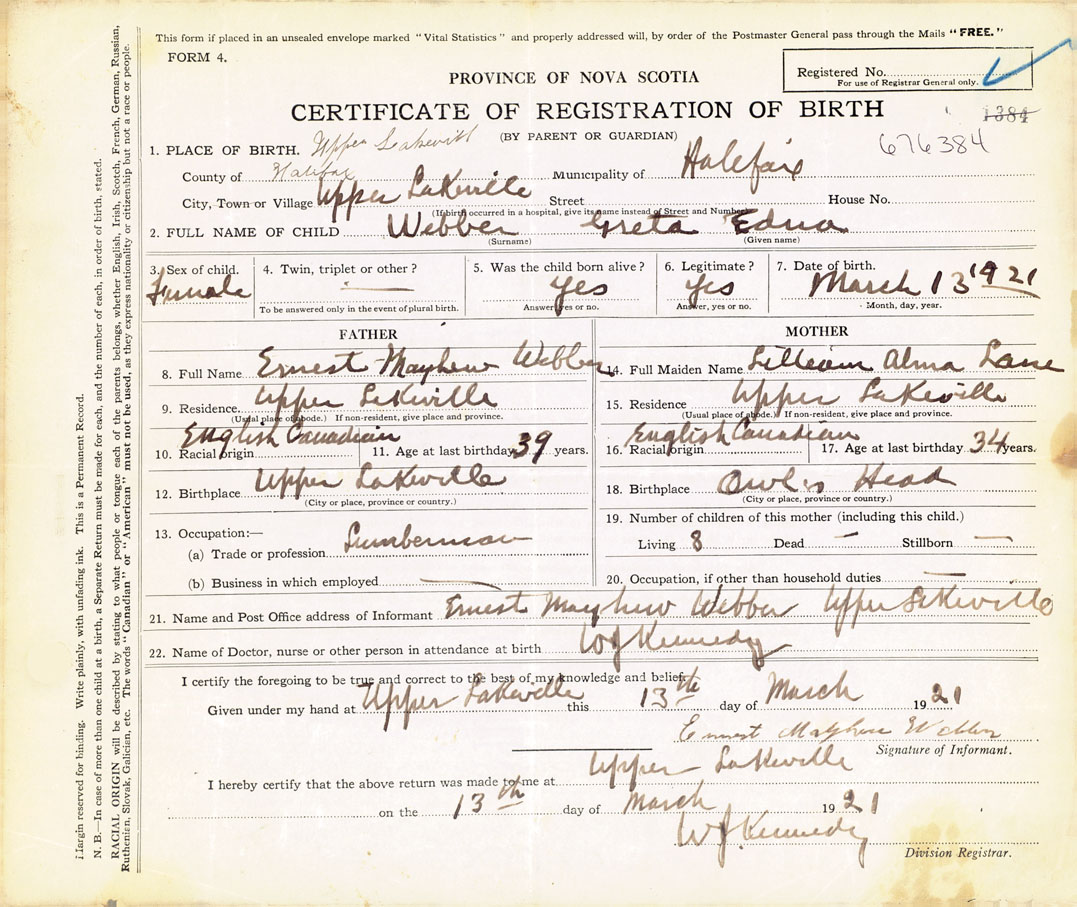 This form if placed in an unsealed envelope marked "Vital Statistics" and properly addressed will, by order of the Postmaster General pass through the Mails "FREE."
FORM 4.
Registered No.
For use of Registrar General only.
PROVINCE OF NOVA SCOTIA
CERTIFICATE OF REGISTRATION OF BIRTH
1384
(BY PARENT OR GUARDIAN)
676384
1. PLACE OF BIRTH. Upper Lakevill
County of Halifax Municipality of Halefaix
City, Town or Village Upper Lakeville Street House No.
(If birth occurred in a hospital, give its name instead of Street and Number)
2. FULL NAME OF CHILD Webber Greta Edna
(Surname) (Given name)
3. Sex of child. 4. Twin, triplet or other? 5. Was the child born alive? 6. Legitimate? 7. Date of birth.
Female — Yes Yes March 13 1921
To be answered only in the event of plural birth. Answer, yes or no. Answer, yes or no. Month, day, year.
FATHER
8. Full Name Ernest Mayhew Webber
9. Residence. Upper Lakeville
(Usual place of abode.) If non-resident, give place and province.
English Canadian
10. Racial origin 11. Age at last birthday 39 years.
12. Birthplace Upper Lakeville
(City or place, province or country.)
13. Occupation:—
(a) Trade or profession Lumberman
(b) Business in which employed —
MOTHER
14. Full Maiden Name Lilleain Alma Lane
15. Residence Upper Lakeville
(Usual place of abode.) If non-resident, give place and province.
English Canadian
16. Racial origin 17. Age at last birthday 34 years.
18. Birthplace Owls Head
(City or place, province or country.)
19. Number of children of this mother (including this child.)
Living 8 Dead — Stillborn —
20. Occupation, if other than household duties —
21. Name and Post Office address of Informant Ernest Mayhew Webber Upper Lakeville
22. Name of Doctor, nurse or other person in attendance at birth WJ Kennedy
I certify the foregoing to be true and correct to the best of my knowledge and belief.
Given under my hand at Upper Lakeville this 13th day of March 1921
Ernest Mayhew Webber
Signature of Informant.
I hereby certify that the above return was made to me at Upper Lakeville
on the 13th day of March 1921
WJ Kennedy
Division Registrar.
Margin reserved for binding. Write plainly, with unfading ink. This is a Permanent Record.
N. B.—In case of more than one child at a birth, a Separate Return must be made for each, and the number of each, in order of birth, stated.
RACIAL ORIGIN will be described by stating to what people or tongue each of the parents belongs, whether English, Irish, Scotch, French, German, Russian,
Ruthenian, Slovak, Galician, etc. The words "Canadian" or "American" must not be used, as they express nationality or citizenship but not a race or people.